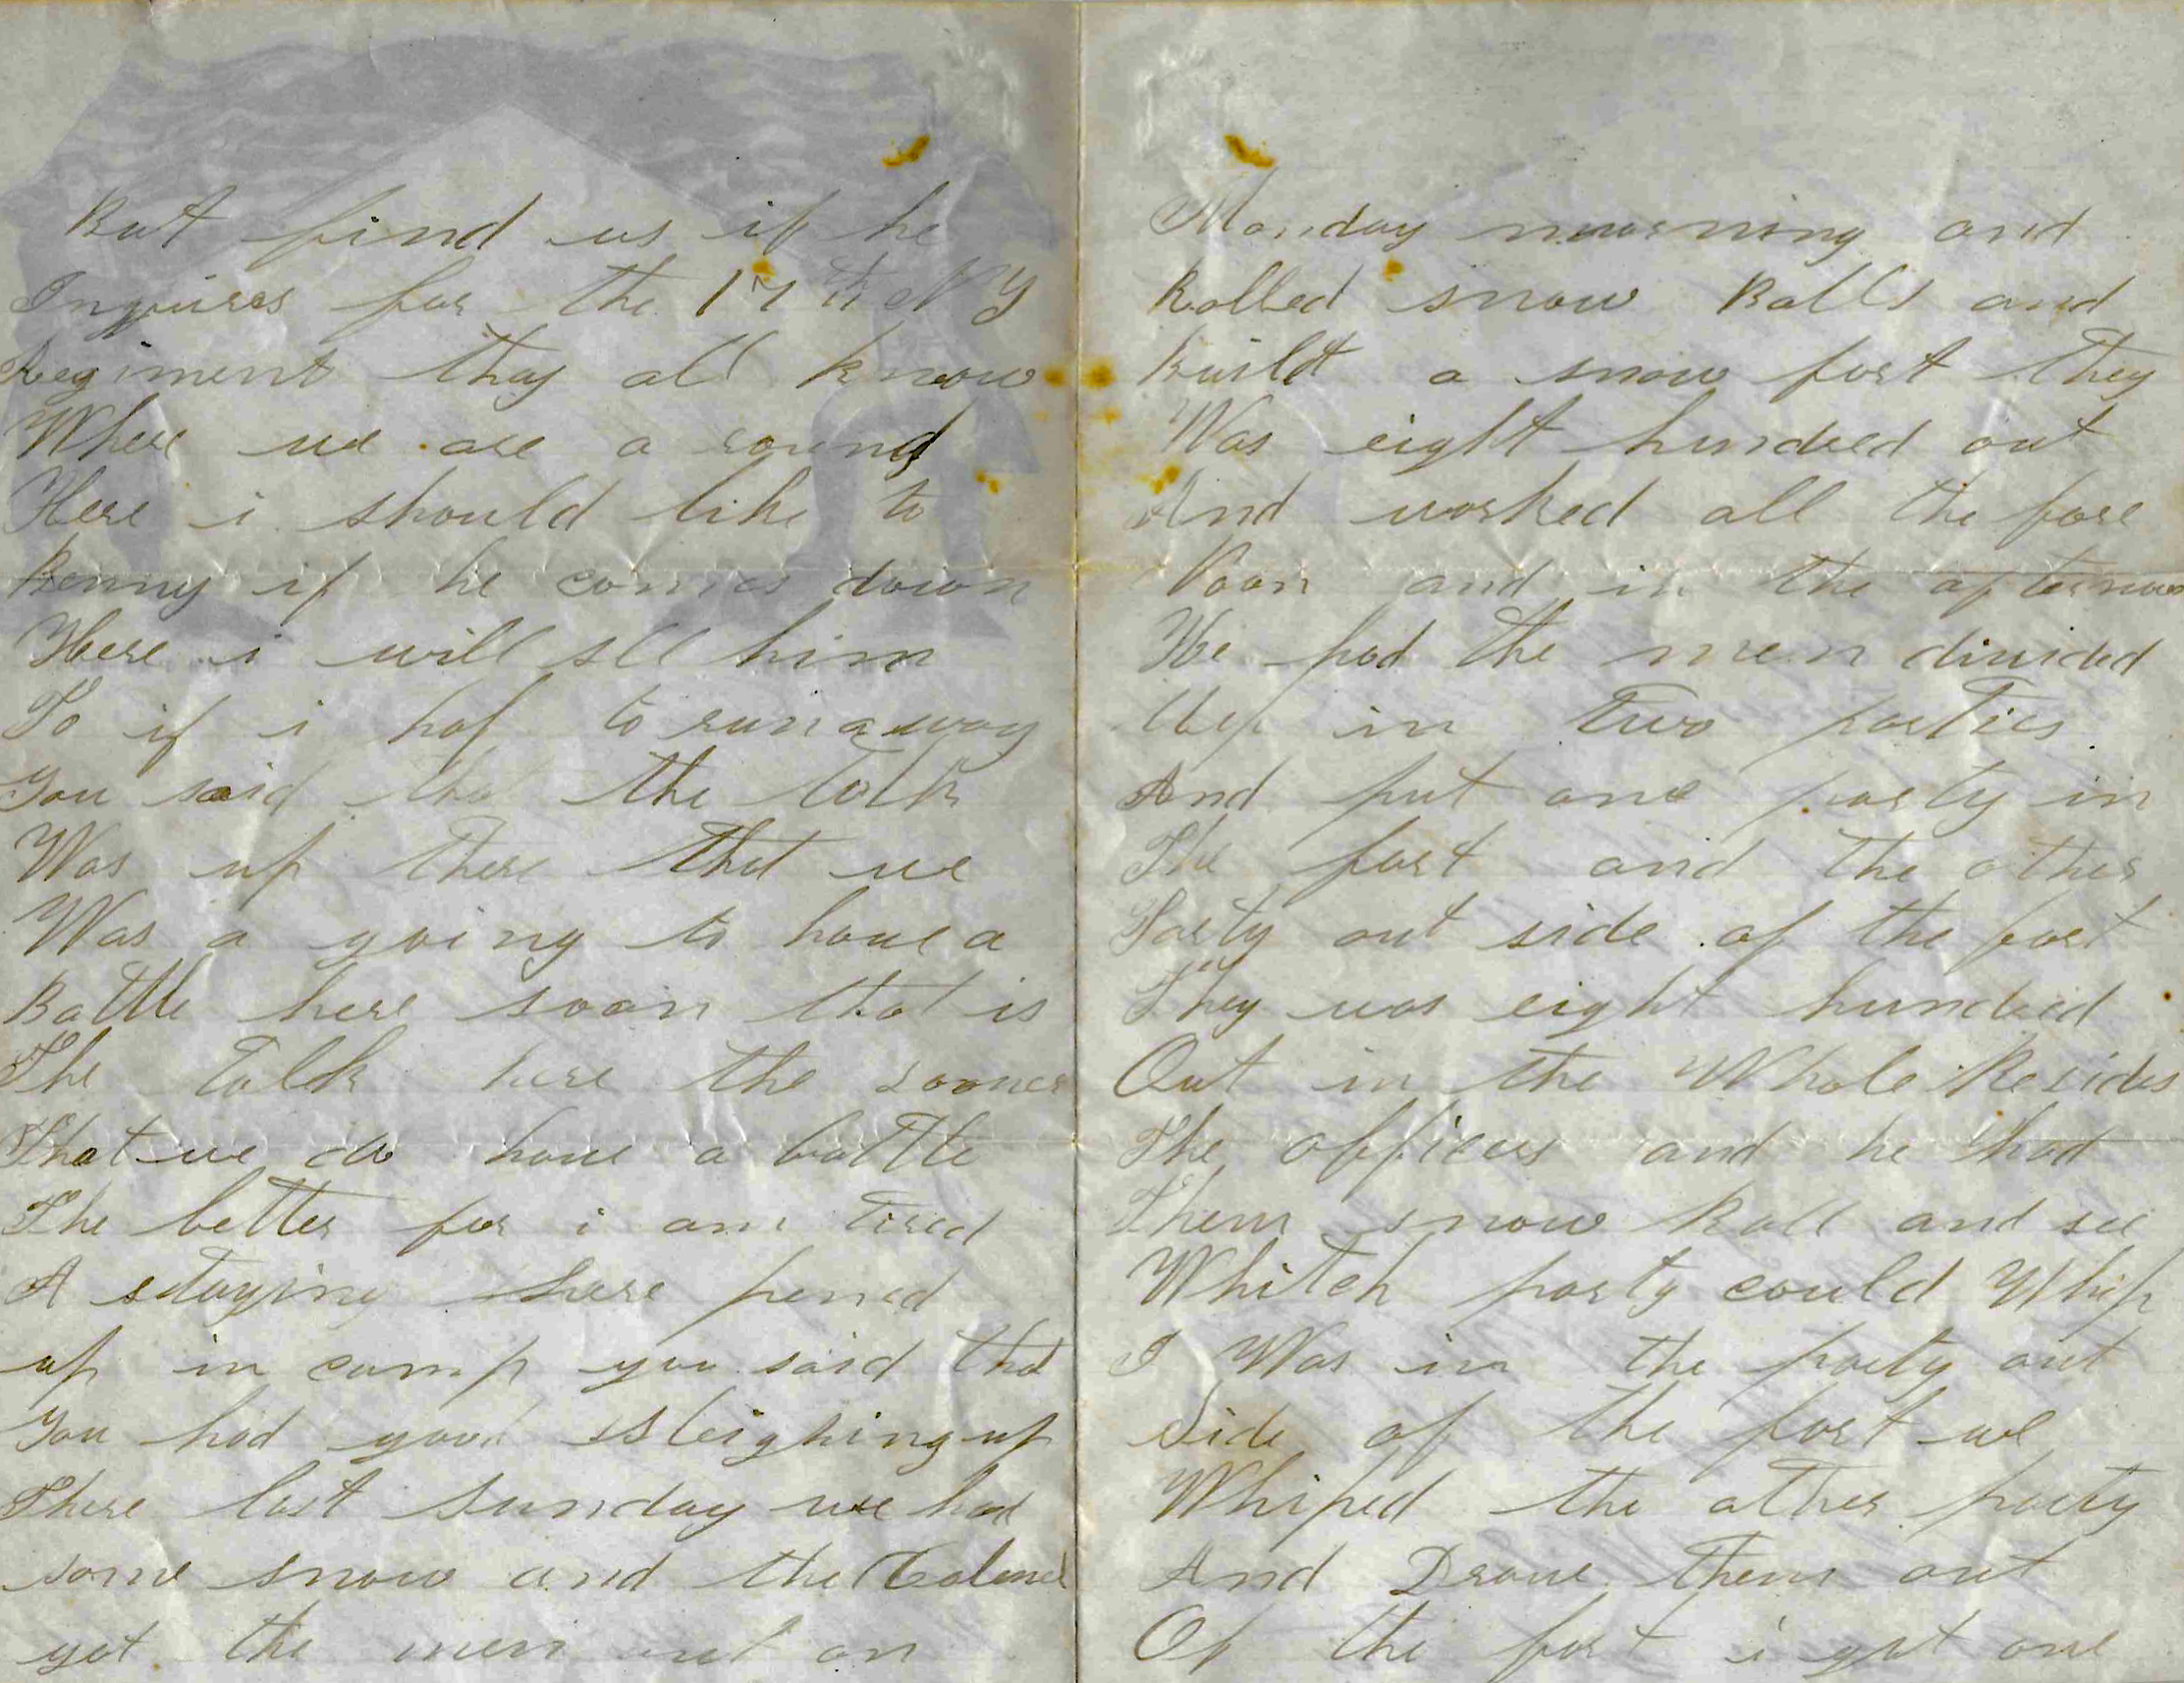 But find us if he
Inquires for the th NY
Regiment thay all know
Where we are a round
Here i should like to
Benny if he comes down
Here i will sll him
To if i haf to run away
You said that the talk
Was up there that we
Was a going to have a
Battle here soon that is
The talk here the sooner
That we do have a battle
The better for i am tired
A staying here pened
up in camp you said that
You had good sleighing up
There last sunday we had
some snow and the Colonel
got the men out on
Monday mourning and
Rolled snow Balls and
Build a snow fort they
Was eight hundred out
And worked all the fore
Noon and in the afternoon
He had the men divided
Up in two parties
And put one party in
The fort and the other
Party out side of the fort
They was eight hundred
Out in the Whole Besides
The officers and he had
Them snow Ball and see
Whitch party could Whip
I Was in the party out
Side of the fort we
Whiped the other party
And Drove them out
Of the fort i got one